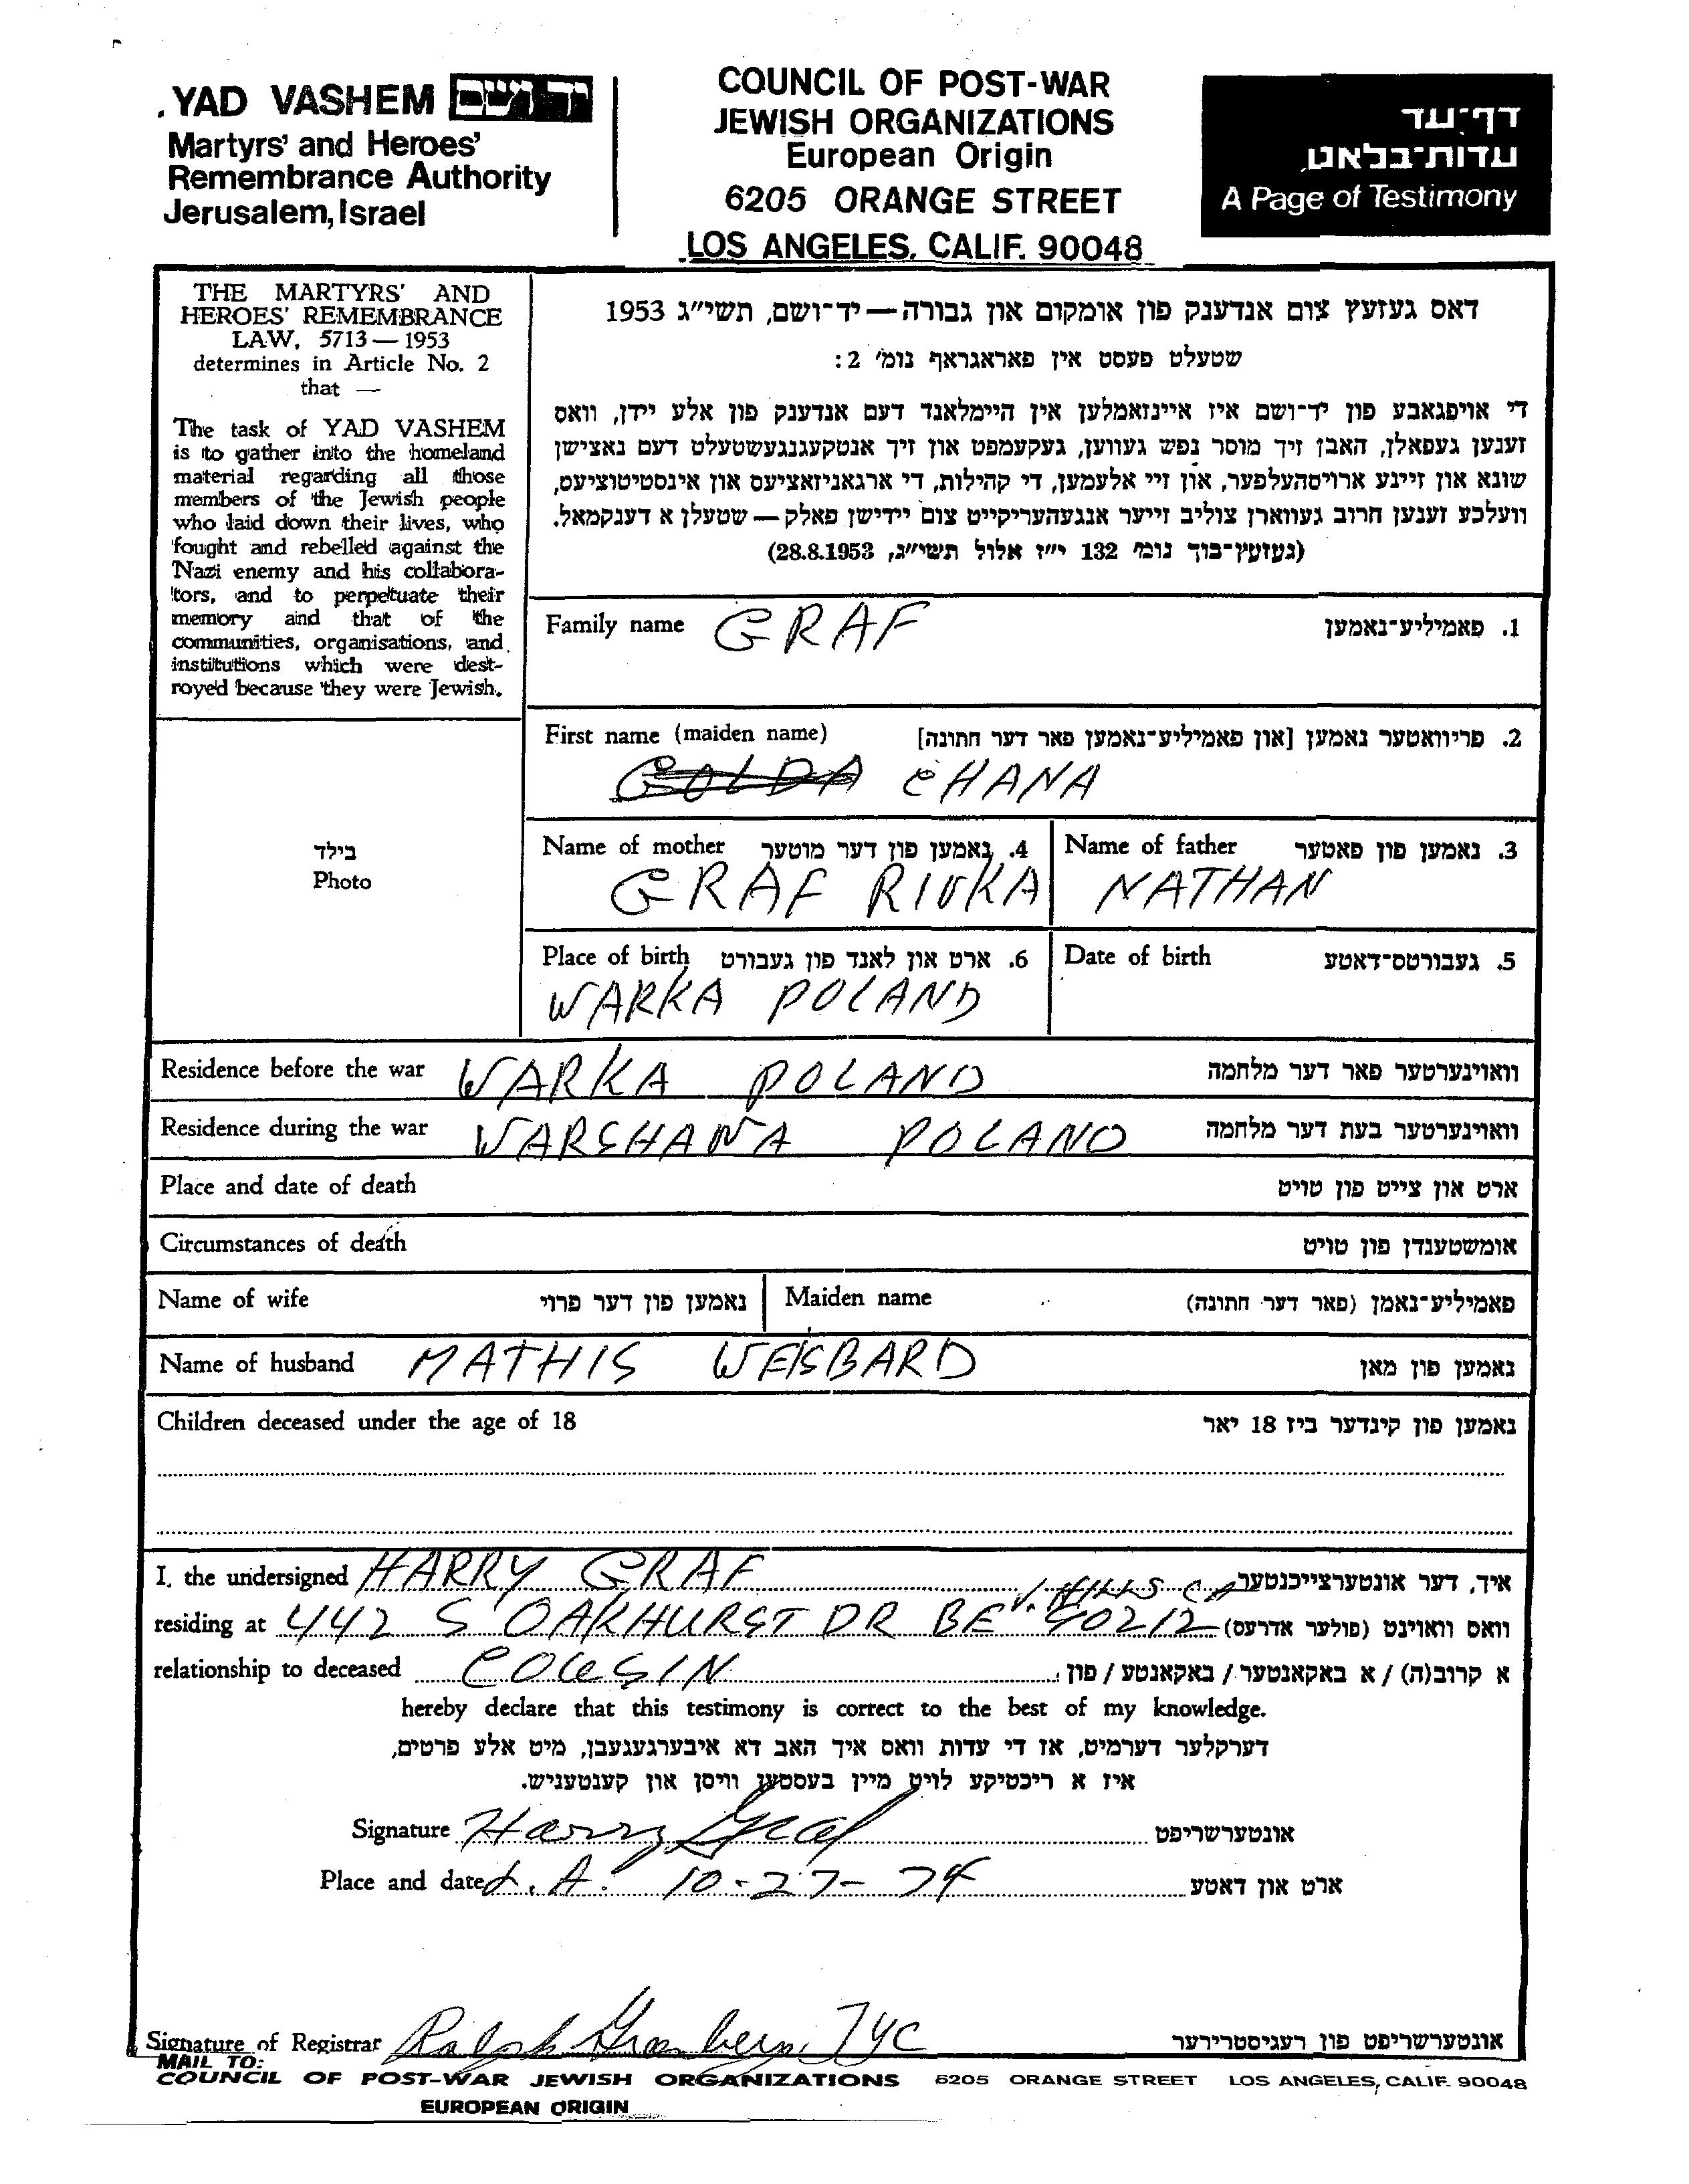 YAD VASHEM יד ושם
Martyrs' and Heroes'
Remembrance Authority
Jerusalem, Israel
COUNCIL OF POST-WAR
JEWISH ORGANIZATIONS
European Origin
6205 ORANGE STREET
LOS ANGELES, CALIF. 90048
דף-עד
עדות-בלאט
A Page of Testimony
THE MARTYRS' AND
HEROES' REMEMBRANCE
LAW, 5713 — 1953
determines in Article No. 2
that —
The task of YAD VASHEM
is to gather into the homeland
material regarding all those
members of the Jewish people
who laid down their lives, who
fought and rebelled against the
Nazi enemy and his collabora-
tors, and to perpetuate their
memory and that of the
communities, organisations, and
institutions which were dest-
royed because they were Jewish.
דאס געזעץ צום אנדענק פון אומקום און גבורה — יד-ושם, תשי"ג 1953
שטעלט פעסט אין פאראגראף נומ' 2:
די אויפגאבע פון יד-ושם איז איינזאמלען אין היימלאנד דעם אנדענק פון אלע יידן, וואס
זענען געפאלן, האבן זיך מוסר נפש געווען, געקעמפט און זיך אנטקעגנגעשטעלט דעם נאצישן
שונא און זיינע ארויסהעלפער, און זיי אלעמען, די קהילות, די ארגאניזאציעס און אינסטיטוציעס,
וועלכע זענען חרוב געווארן צוליב זייער אנגעהעריקייט צום יידישן פאלק — שטעלן א דענקמאל.
(געזעץ-בוך נומ' 132 י"ז אלול תשי"ג, 28.8.1953)
Family name GRAF 1. פאמיליע-נאמען
First name (maiden name) 2. פריוואטער נאמען [און פאמיליע-נאמען פאר דער חתונה]
GOLDA CHANA
בילד
Photo
Name of mother 4. נאמען פון דער מוטער Name of father 3. נאמען פון פאטער
GRAF RIVKA NATHAN
Place of birth 6. ארט און לאנד פון געבורט Date of birth 5. געבורטס-דאטע
WARKA POLAND
Residence before the war WARKA POLAND וואוינערטער פאר דער מלחמה
Residence during the war WARSHAWA POLAND וואוינערטער בעת דער מלחמה
Place and date of death ארט און צייט פון טויט
Circumstances of death אומשטענדן פון טויט
Name of wife נאמען פון דער פרוי Maiden name פאמיליע-נאמן (פאר דער חתונה)
Name of husband MATHIS WEISBARD נאמען פון מאן
Children deceased under the age of 18 נאמען פון קינדער ביז 18 יאר
I, the undersigned HARRY GRAF איך, דער אונטערצייכנטער
residing at 442 S OAKHURST DR BEV. HILLS CA 90212 וואס וואוינט (פולער אדרעס)
relationship to deceased COUSIN א קרוב(ה) / א באקאנטער / באקאנטע / פון
hereby declare that this testimony is correct to the best of my knowledge.
דערקלער דערמיט, אז די עדות וואס איך האב דא איבערגעגעבן, מיט אלע פרטים,
איז א ריכטיקע לויט מיין בעסטען וויסן און קענטעניש.
Signature Harry Graf אונטערשריפט
Place and date L. A. 10-27-74 ארט און דאטע
Signature of Registrar Ralph אונטערשריפט פון רעגיסטרירער
MAIL TO:
COUNCIL OF POST-WAR JEWISH ORGANIZATIONS 6205 ORANGE STREET LOS ANGELES, CALIF. 90048
EUROPEAN ORIGIN